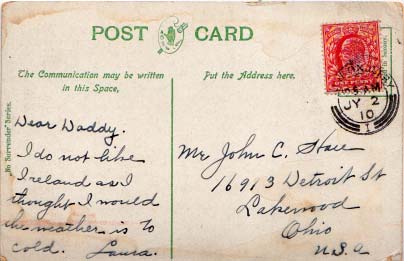 POST CARD
The Communication may be written
in this Space.
Put the Address here.
"No Surrender" Series.
Dear Daddy.
I do not like
Ireland as I
thought I would
the weather is to
cold. Laura.
Mr John C. Hare
16913 Detroit St
Lakewood
Ohio
U.S.a
JY 2
10
1